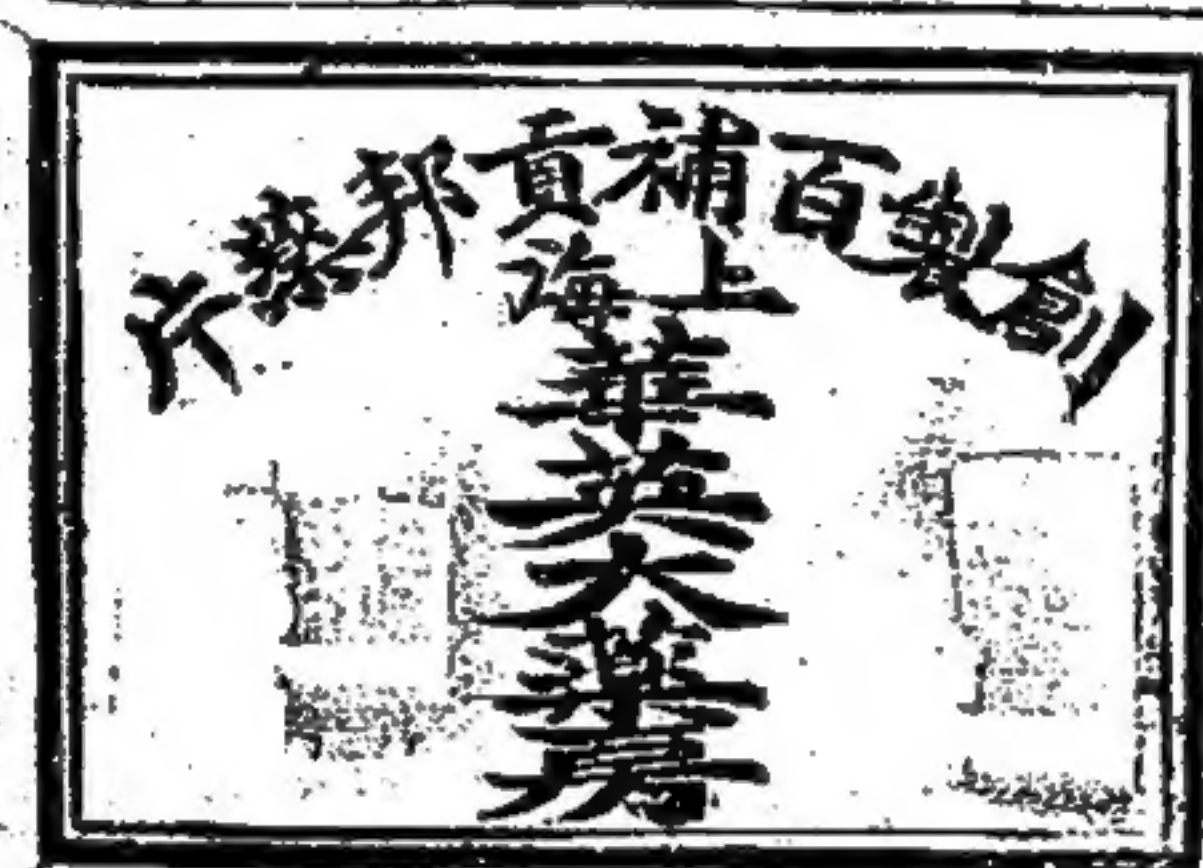 創製百補貢邦藥片
上海
華英大藥房